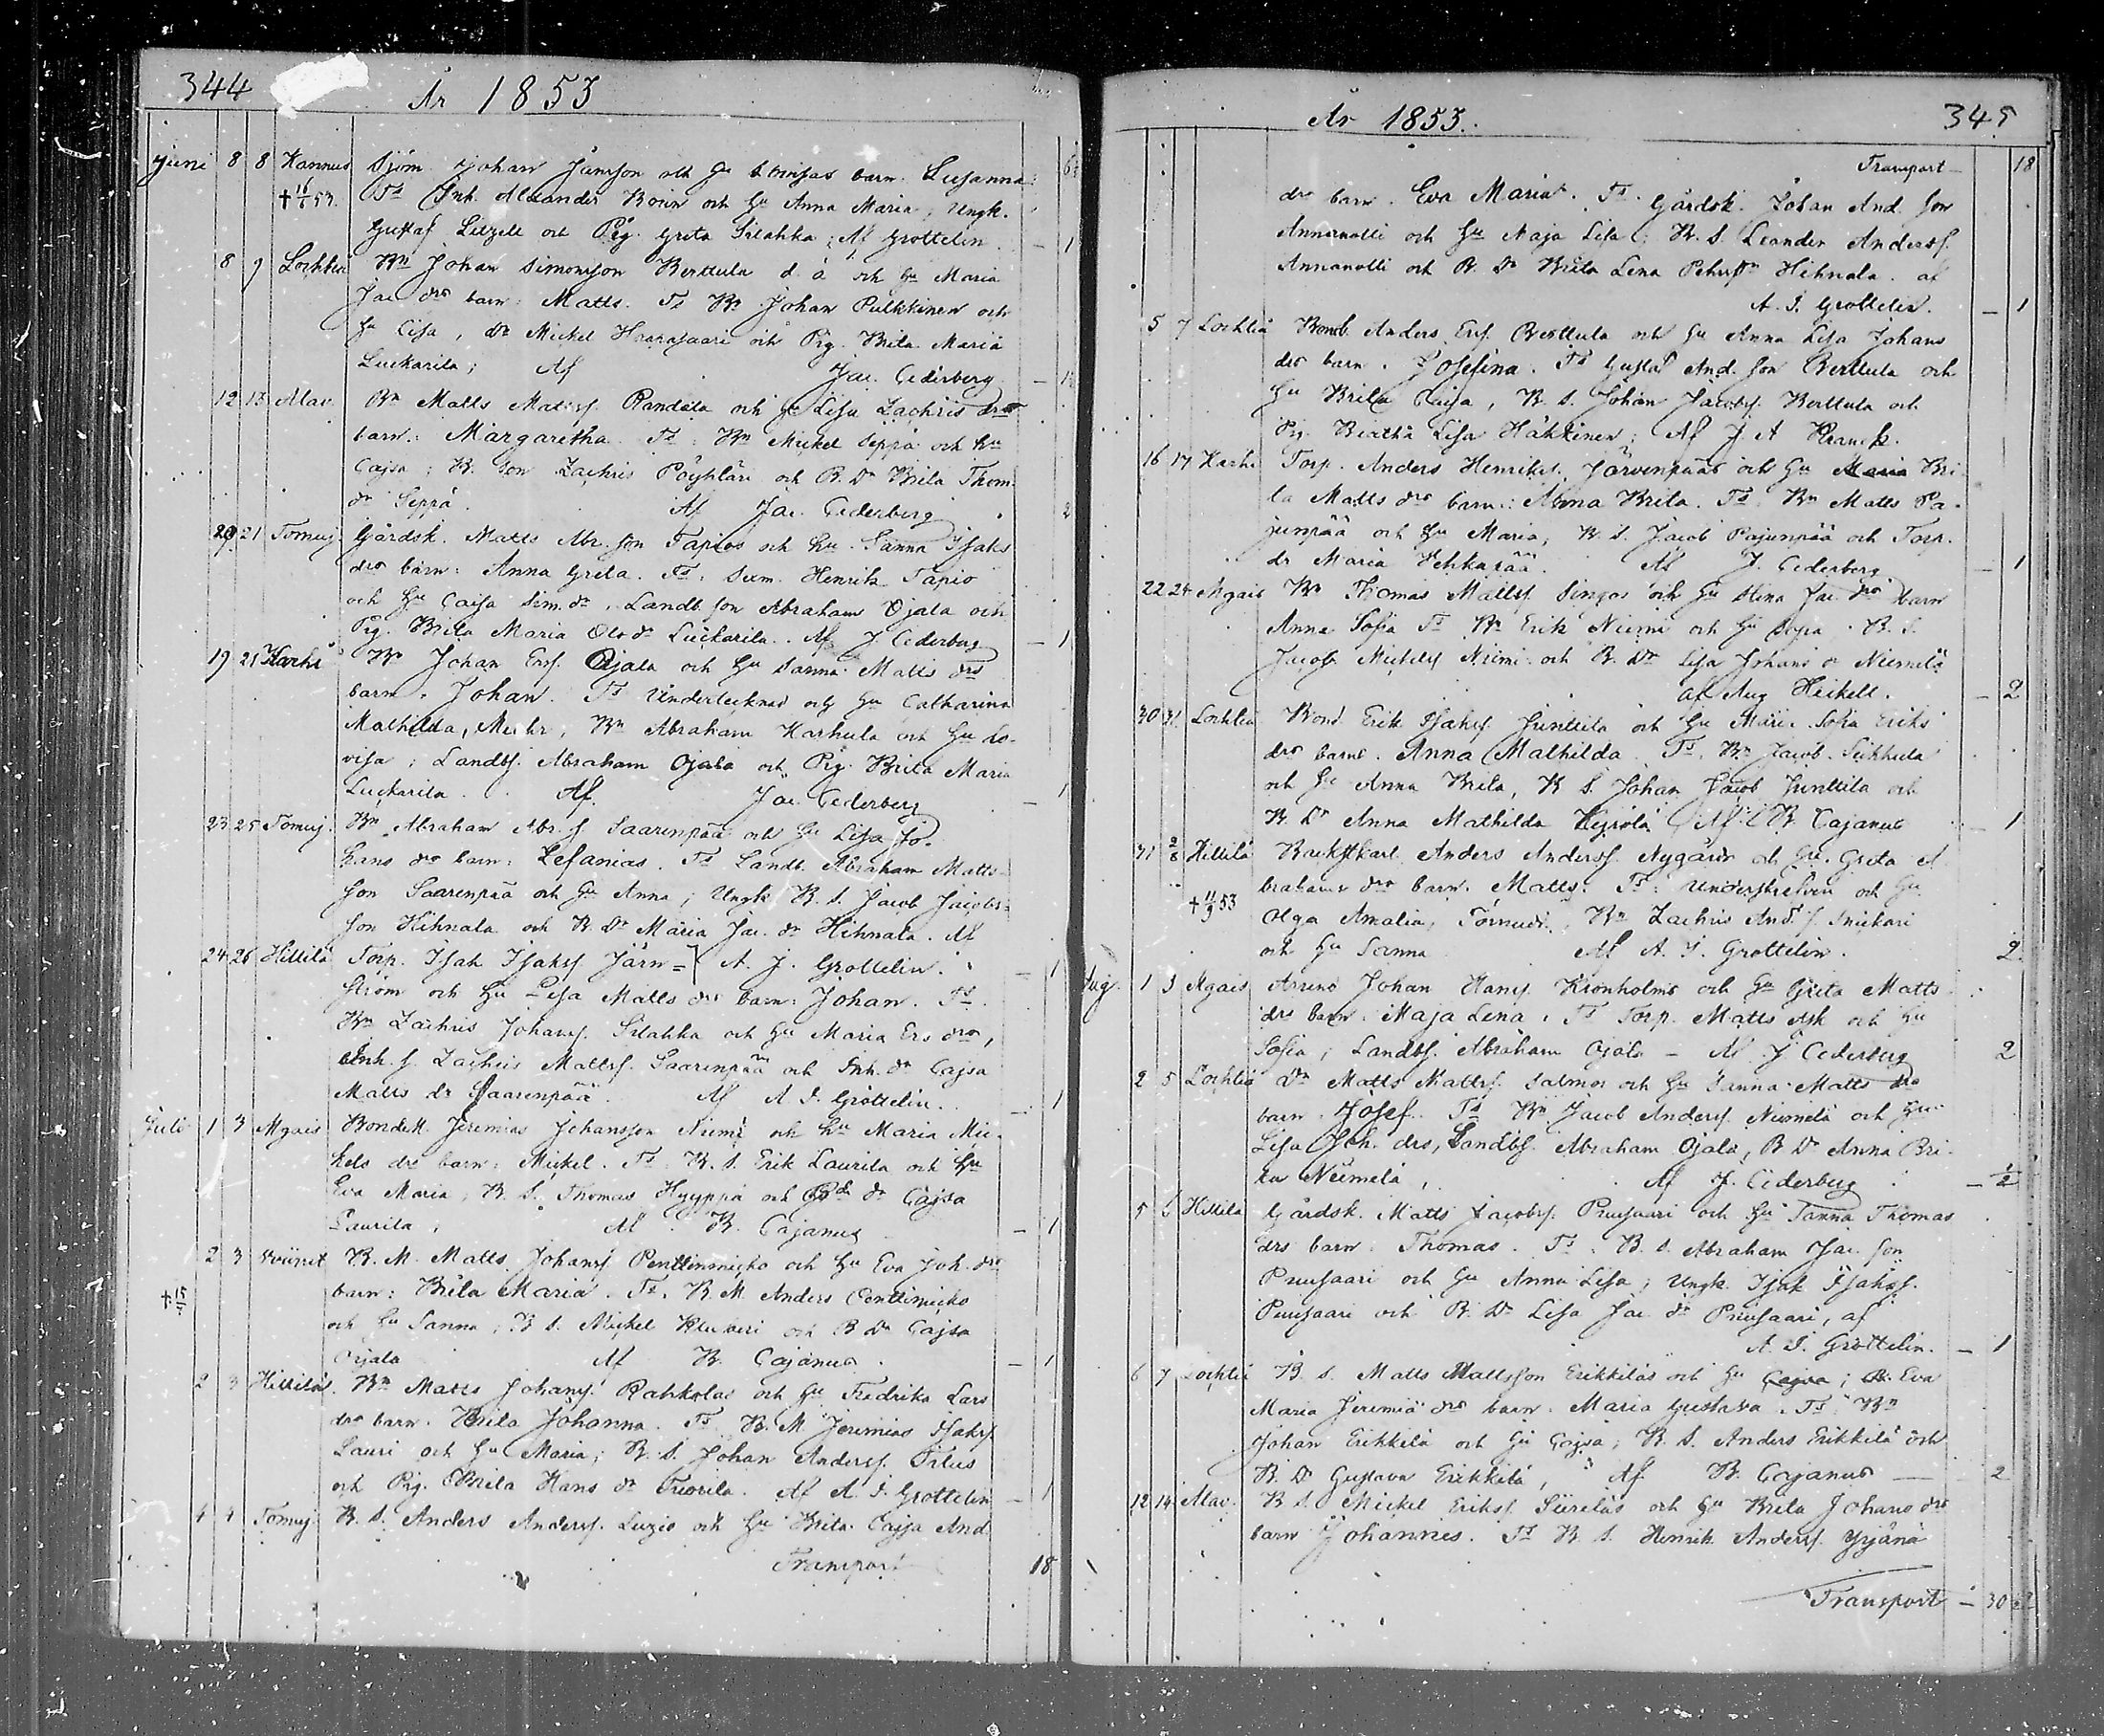 344
År 1853
Juni 8 8 Kannus Sjöm. Johan Jansson och Hu Lovisas barn. Susanna:
† 53. Ts Inh. Alexander Borin och Hu Anna Maria; Ungk.
Gustaf Litzell och Pig. Greta Silahka; Af Grottelin. – 1
8 9 Lochtea Bn Johan Simonsson Berttula d. ä och Hu Maria
Jac drs barn: Matts. Ts Bn Johan Pulkkinen och
Hu Cisa, Dr Mickel Haarasaari och Pig. Brita Maria
Luckarila; Af Jac. Cederberg
12 13 Alav. Bn Matts Mattsf. Randala och Hu Lisa Zachris drs
barn: Margaretha. Ts: Bn Mickel Seppä och Hu
Cajsa; B. son Zachris Pöyhtäri och B. Dr Brita Thom.
dr Seppä. Af Jac. Cederberg 2
20 21 Tomuj. Gårdsk. Matts Abr. son Tapios och Hu Sanna Isaks
drs barn: Anna Greta. Ts: Sum. Henrik Tapio
och Hu Caisa Sim. dr, Landb son Abraham Ojala och
Pig. Brita Maria Olo dr Luckarila. Af J Cederberg – 1
19 21 Karhi Bn Johan Ersf. Ojala och Hu Sanna Matts drs
barn: Johan. Ts Undertecknad och Hu Catharina
Mathilda, Bn Abraham Karhula och Hu Lo-
visa; Landbf. Abraham Ojala och Pig. Brita Maria
Luckarila. Af. Jac. Cederberg – 1
23 25 Tomuj. Bn Abraham Abr. f Saarenpää och Hu Lisa Jo-
hans drs barn: Zefanias. Ts Landb. Abraham Matts-
son Saarenpää och Hu Anna; Ungk B. S. Jacob Jacobs-
son Hihnala och B. Dr Maria Jac. dr Hihnala. Af
24 26 Hillilä Torp. Isak Isaksf Järn= A. J. Grottelin. – 1
ström och Hu Lisa Matts drs barn: Johan. Ts
Bn Zachris Johansf. Silahka och Hu Maria Ers dro,
Inh. f. Zachris Mattsf. Saarenpää och Inh. dr Cajsa
Matts dr Saarenpää. Af A. J. Grottelin. – 1
Juli 1 3 Ågais Bonde M. Jeremias Johansson Niemi och Hu Maria Mic-
kels drs barn: Mickel. Ts: B. S. Erik Laurila och Hu
Eva Maria, B. S. Thomas Hyyppä och dr Cajsa
Laurila, Af B. Cajanus – 1
2 3 B. M. Matts Johansf Penttinmicko och Hu Eva Joh. drs
† barn: Brita Maria. Ts. B. M Anders Penttimicko
och Hu Sanna; B S. Mickel och B Dr Cajsa
Ojala Af B. Cajanus. – 1
2 3 Hillilä. Bn Matts Johansf. Rahkolas och Hu Fredrika Lars
drs barn. Brita Johanna. Ts B. M Jeremias Isaksf
Lauri och Hu Maria; B. S. Johan Andersf.
och Pig. Brita Hans dr Tuorila. Af A. J. Grottelin – 1
4 4 Tomuj. B. S. Anders Andersf. Luzio och Hu Brita Cajsa And
Transport 18
År 1853.
345
Transport – 18
drs barn. Eva Maria. Ts. Gårdsk. Johan And. son
Annanolli och Hu Maja Lisa; B. S. Leander Andersf.
Annanolli och B. Dr Brita Lena Hihnala. af
A. J. Grottelin. – 1
5 7 Lochteå Bonds. Anders Ersf. Berttula och Hu Anna Lisa Johans
drs barn. Josefina. Ts Gustaf And. son Berttula och
Hu Brita Caisa, B. S. Johan Jacobsf. Berttula och
Pig. Beata Lisa Häkkinen; Af J. A Franck.
16 17 Karhi Torp. Anders Henriksf. Järvenpääs och Hu Maria Bri-
ta Matts drs barn: Anna Brita. Ts. Bn Matts Pa-
junpää och Hu Maria; B. S. Jacob Pajunpää och Torp.
dr Maria Af J. Cederberg – 1
22 24 Ågais Bn Thomas Mattsf Singos och Hu Stina Jac. drs barn
Anna Sofia Ts Bn Erik Niemi och Hu Sofia. B. S.
Jacob Mickelsf Niemi och B. Dr Lisa Johans dr Niemelä
af Aug Heikell. – 2
30 31 Lochteå Bond. Erik Isaksf Junttila och Hu Maria Sofia Eriks
drs barn. Anna Mathilda. Ts. Bn Jacob
och Hu Anna Brita, B S. Johan Jacob Junttila och
B. Dr Anna Mathilda Af B. Cajanus – 1
31 2/8 Hillilä Backstkarl. Anders Andersf. Nygård och Hu. Greta A-
brahams drs barn. Matts. Ts: Underskrefven och Hu
† 53 Olga Amalia; Bn Zachris And f. Snickari
och Hu Sanna Af A. J. Grottelin. 2
Aug. 1 3 Ågais Johan Hansf. Kronholms och Hu Greta Matts
drs barn. Maja Lena. Ts Torp. Matts Ask och Hu
Sofia; Landbf. Abraham Ojala – Af J Cederberg 2
2 5 Lochteå Dr Matts Mattsf. Salmos och Hu Sanna Matts drs
barn. Josef. Ts Bn Jacob Andersf. Niemelä och Hu
Lisa Joh. drs, Landbf. Abraham Ojala, B Dr Anna Bri-
ta Niemelä, Af J. Cederberg – ½
5 6 Hillilä Gårdsk. Matts Jacobsf. Puusaari och Hu Sanna Thomas
drs barn: Thomas. Ts: B. S. Abraham Jac. son
Puusaari och Hu Anna Lisa; Ungk. Isak Isaksf.
Puusaari och B. Dr Lisa Jac dr Puusaari, af
A. J. Grottelin. – 1
6 7 Lochteå B. S. Matts Mattsson Erikkiläs och Hu Cajsa; B. Eva
Maria Jeremiæ drs barn. Maria Gustava. Ts Bn
Johan Erikkilä och Hu Cajsa; B. S. Anders Erikkilä och
B. Dr Gustava Erikkilä, Af B. Cajanus — 2
12 14 Alav. B S. Mickel Eriksf Siiriläs och Hu Brita Johans drs
barn Johannes. Ts B. S. Henrik Andersf. Yrjänä
Transport – 30